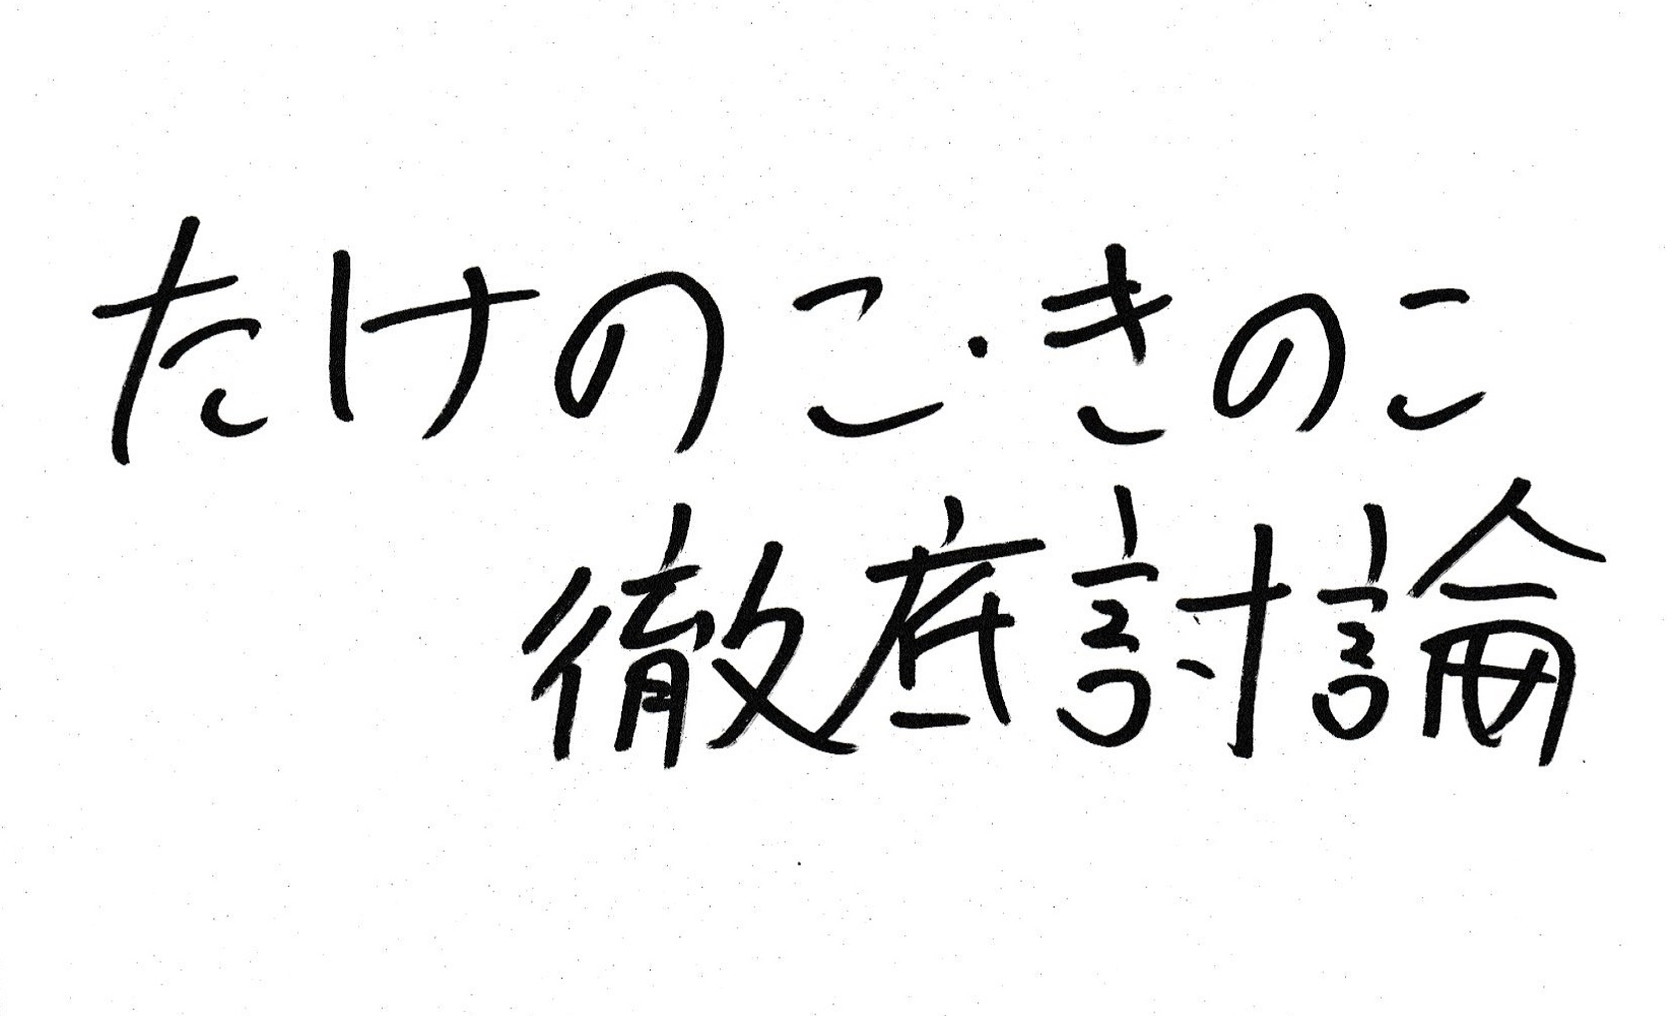 たけのこ・きのこ
徹底討論